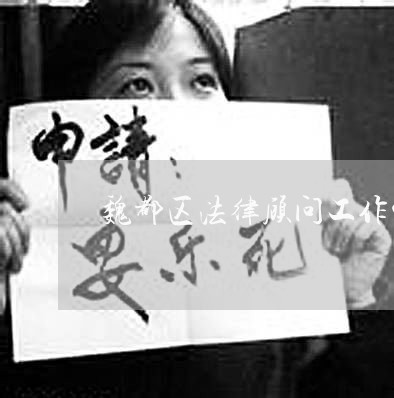 申請：
魏都区法律顾问工作
安乐死